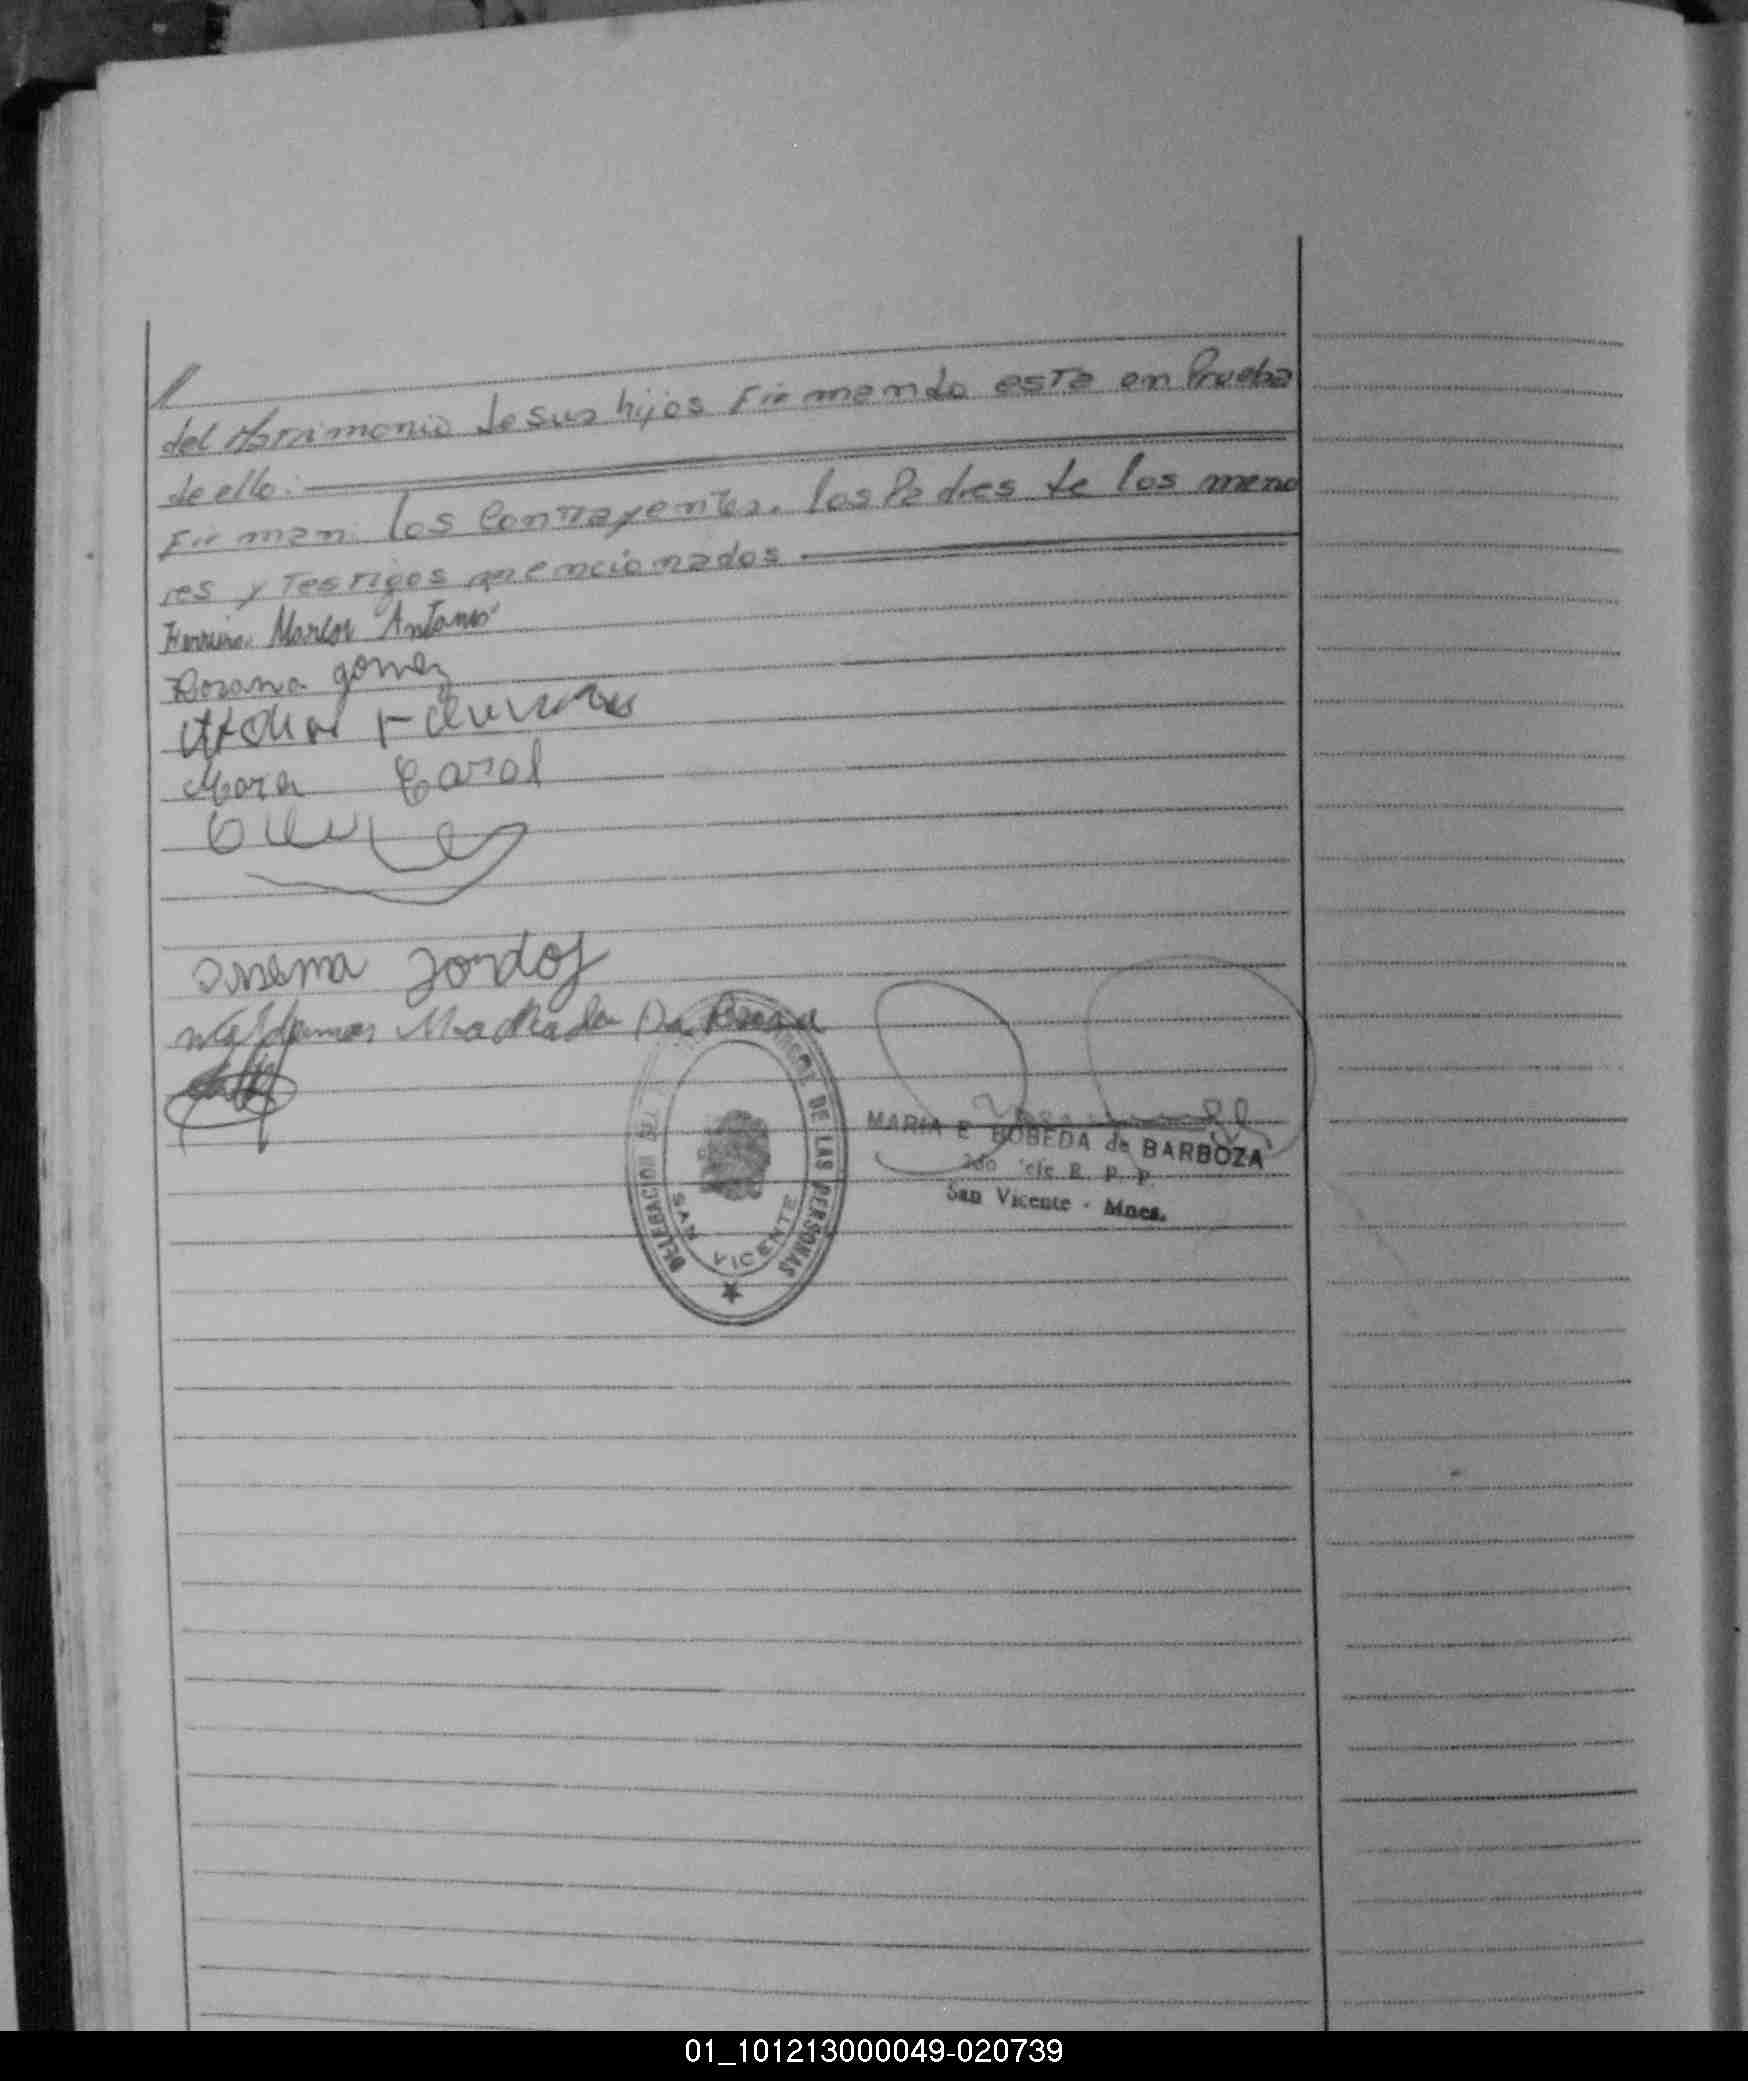 del Matrimonio de sus hijos Firmando este en Prueba
de ello.
Firman: los Contrayentes. los Padres de los meno
res y Testigos mencionados
Ferreira Marcos Antonio
Rosana gomez
Mora Carol
Jordoj
Waldemar Machado Da Rosa
DELEGACION DE LAS PERSONAS
SAN VICENTE
MARIA E BOBEDA de BARBOZA
R. P. P.
San Vicente - Mnes.
01_101213000049-020739